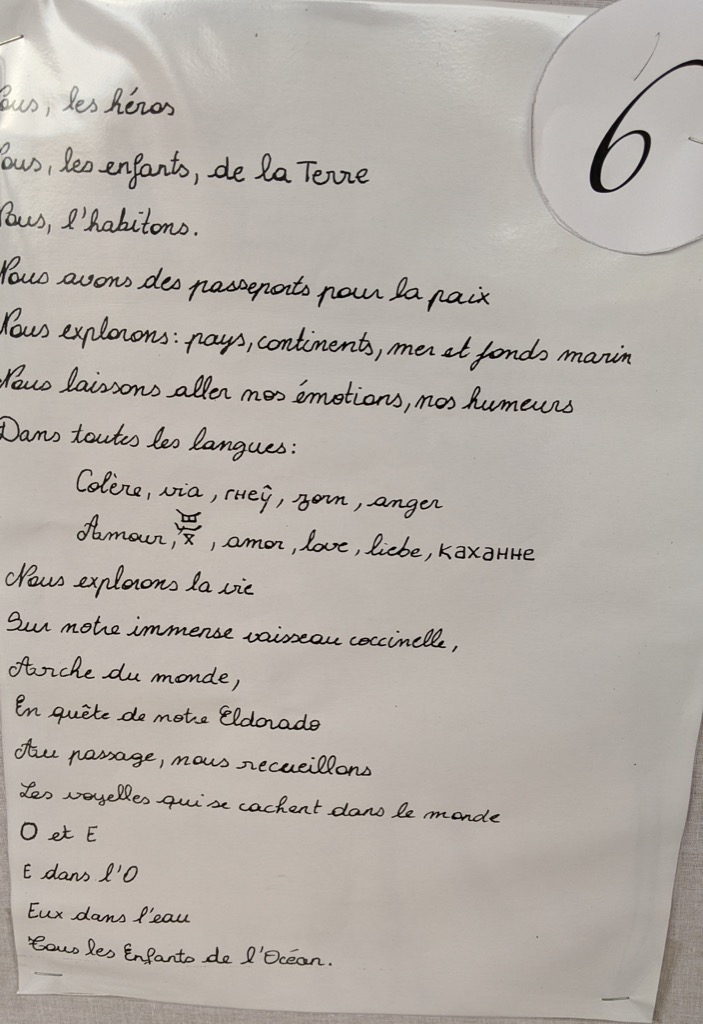 Nous, les héros
Nous, les enfants, de la Terre
Nous, l'habitons.
Nous avons des passeports pour la paix
Nous explorons : pays, continents, mer et fonds marin
Nous laissons aller nos émotions, nos humeurs
Dans toutes les langues :
Colère, via, гнеў, zorn, anger
Amour, , amor, love, liebe, каханне
Nous explorons la vie
Sur notre immense vaisseau coccinelle,
Arche du monde,
En quête de notre Eldorado
Au passage, nous recueillons
Les voyelles qui se cachent dans le monde
O et E
E dans l'O
Eux dans l'eau
Tous les Enfants de l'Océan.
6